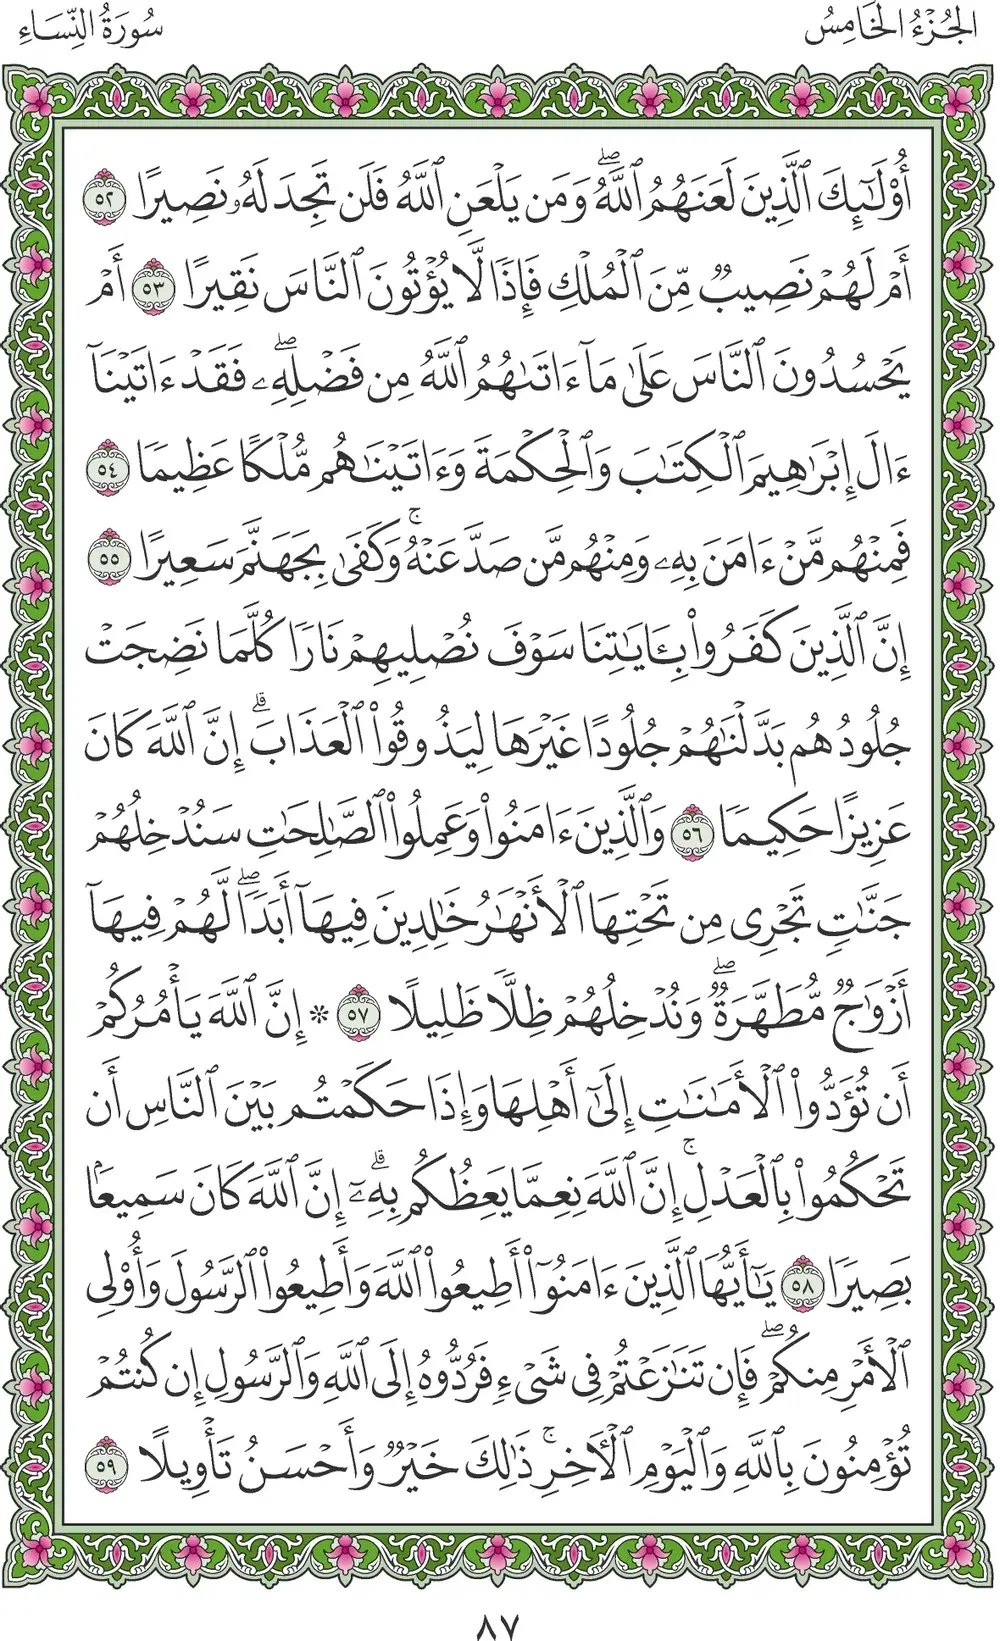 الجُزْءُ الخَامِسُ
سُورَةُ النِّسَاءِ
أُوْلَٰٓئِكَ ٱلَّذِينَ لَعَنَهُمُ ٱللَّهُۖ وَمَن يَلْعَنِ ٱللَّهُ فَلَن تَجِدَ لَهُۥ نَصِيرًا ٥٢
أَمْ لَهُمْ نَصِيبٞ مِّنَ ٱلْمُلْكِ فَإِذٗا لَّا يُؤْتُونَ ٱلنَّاسَ نَقِيرًا ٥٣ أَمْ
يَحْسُدُونَ ٱلنَّاسَ عَلَىٰ مَآ ءَاتَىٰهُمُ ٱللَّهُ مِن فَضْلِهِۦۖ فَقَدْ ءَاتَيْنَآ
ءَالَ إِبْرَٰهِيمَ ٱلْكِتَٰبَ وَٱلْحِكْمَةَ وَءَاتَيْنَٰهُم مُّلْكًا عَظِيمٗا ٥٤
فَمِنْهُم مَّنْ ءَامَنَ بِهِۦ وَمِنْهُم مَّن صَدَّ عَنْهُۚ وَكَفَىٰ بِجَهَنَّمَ سَعِيرًا ٥٥
إِنَّ ٱلَّذِينَ كَفَرُواْ بِـَٔايَٰتِنَا سَوْفَ نُصْلِيهِمْ نَارٗا كُلَّمَا نَضِجَتْ
جُلُودُهُم بَدَّلْنَٰهُمْ جُلُودًا غَيْرَهَا لِيَذُوقُواْ ٱلْعَذَابَۗ إِنَّ ٱللَّهَ كَانَ
عَزِيزًا حَكِيمٗا ٥٦ وَٱلَّذِينَ ءَامَنُواْ وَعَمِلُواْ ٱلصَّٰلِحَٰتِ سَنُدْخِلُهُمْ
جَنَّٰتٖ تَجْرِي مِن تَحْتِهَا ٱلْأَنْهَٰرُ خَٰلِدِينَ فِيهَآ أَبَدٗاۖ لَّهُمْ فِيهَآ
أَزْوَٰجٞ مُّطَهَّرَةٞۖ وَنُدْخِلُهُمْ ظِلّٗا ظَلِيلًا ٥٧ ۞ إِنَّ ٱللَّهَ يَأْمُرُكُمْ
أَن تُؤَدُّواْ ٱلْأَمَٰنَٰتِ إِلَىٰٓ أَهْلِهَا وَإِذَا حَكَمْتُم بَيْنَ ٱلنَّاسِ أَن
تَحْكُمُواْ بِٱلْعَدْلِۚ إِنَّ ٱللَّهَ نِعِمَّا يَعِظُكُم بِهِۦٓۗ إِنَّ ٱللَّهَ كَانَ سَمِيعَۢا
بَصِيرٗا ٥٨ يَٰٓأَيُّهَا ٱلَّذِينَ ءَامَنُوٓاْ أَطِيعُواْ ٱللَّهَ وَأَطِيعُواْ ٱلرَّسُولَ وَأُوْلِي
ٱلْأَمْرِ مِنكُمْۖ فَإِن تَنَٰزَعْتُمْ فِي شَيْءٖ فَرُدُّوهُ إِلَى ٱللَّهِ وَٱلرَّسُولِ إِن كُنتُمْ
تُؤْمِنُونَ بِٱللَّهِ وَٱلْيَوْمِ ٱلْأٓخِرِۚ ذَٰلِكَ خَيْرٞ وَأَحْسَنُ تَأْوِيلًا ٥٩
٨٧